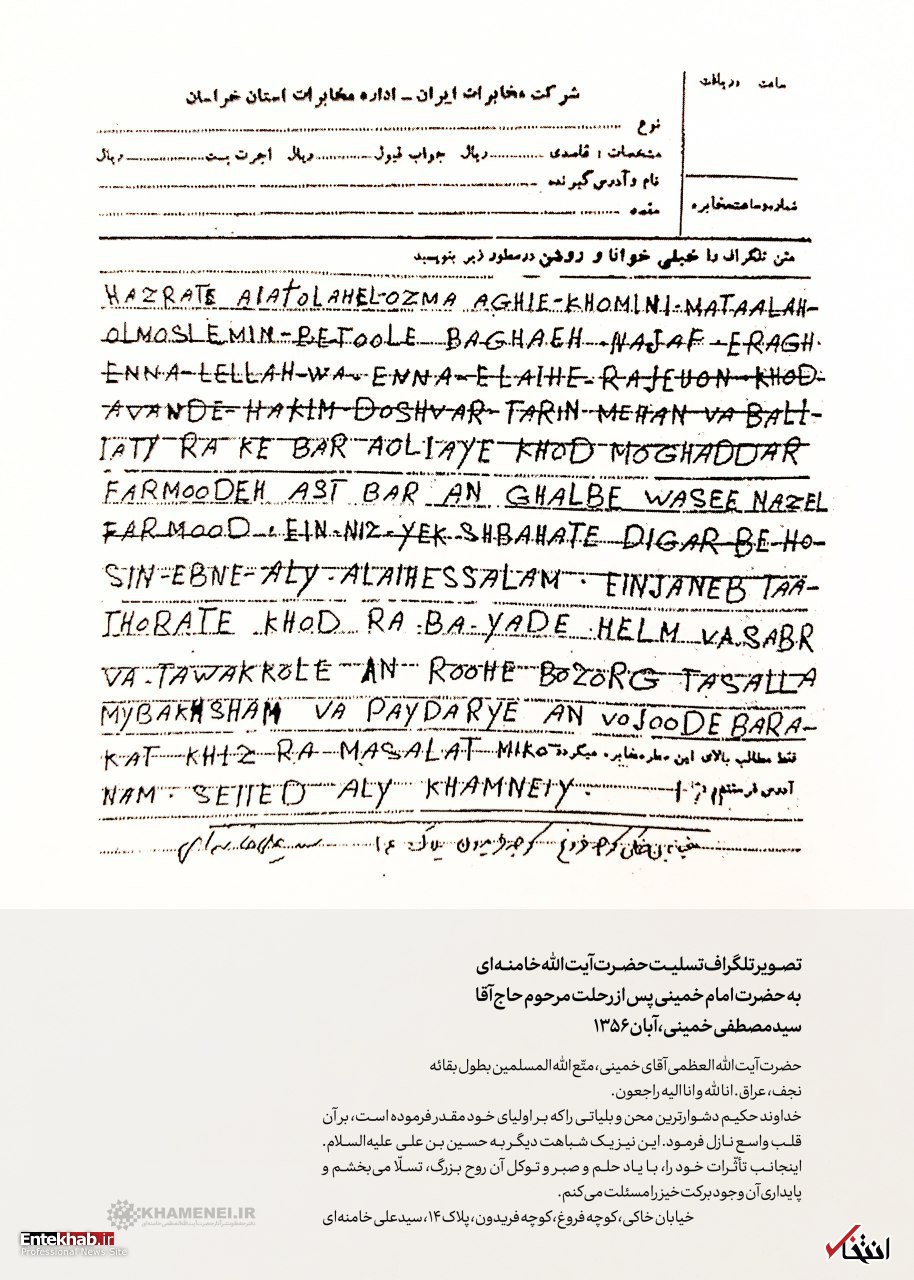 ساعت دریافت
شرکت مخابرات ایران ـ اداره مخابرات استان خراسان
نوع
مشخصات : قاصدی ریال جواب قبول ریال اجرت پست ریال
نام و آدرس گیرنده
مقصد
شماره و ساعت مخابره
متن تلگراف را خیلی خوانا و روشن در سطور زیر بنویسید
HAZRATE AIATOLAHEL-OZMA AGHIE-KHOMINI-MATAALAH-
OLMOSLEMIN-BETOOLE BAGHAEH-NAJAF-ERAGH.
ENNA-LELLAH-WA-ENNA-ELAIHE-RAJEUON-KHOD-
AVANDE-HAKIM-DOSHVAR-TARIN-MEHAN VA BALI-
IATY RA KE BAR AOLIAYE KHOD MOGHADDAR
FARMOODEH AST BAR AN GHALBE WASEE NAZEL
FARMOOD. EIN-NIZ-YEK SHBAHATE DIGAR-BE-HO-
SIN-EBNE-ALY-ALAIHESSALAM. EINJANEB TAA-
THORATE KHOD RA BA-YADE HELM VA SABR
VA-TAWAKKOLE AN ROOHE BOZORG TASALLA
MYBAKHSHAM VA PAYDARYE AN VOJOODE BARA-
KAT KHIZ RA MASALAT MIKO فقط مطالب بالای این سطر مخابره میگردد
NAM. SEIIED ALY KHAMNEIY. آدرس فرستنده
خیابان خاکی کوچه فروغ کوچه فریدون پلاک ۱۴ سید علی خامنه‌ای
تصویر تلگراف تسلیت حضرت آیت الله خامنه‌ای
به حضرت امام خمینی پس از رحلت مرحوم حاج آقا
سید مصطفی خمینی، آبان ۱۳۵۶
حضرت آیت الله العظمی آقای خمینی، متّع الله المسلمین بطول بقائه
نجف، عراق. انا لله و انا الیه راجعون.
خداوند حکیم دشوارترین محن و بلیاتی را که بر اولیای خود مقدر فرموده است، بر آن
قلب واسع نازل فرمود. این نیز یک شباهت دیگر به حسین بن علی علیه السلام.
اینجانب تأثّرات خود را، با یاد حلم و صبر و توکل آن روح بزرگ، تسلّا می‌بخشم و
پایداری آن وجود برکت خیز را مسئلت می‌کنم.
خیابان خاکی، کوچه فروغ، کوچه فریدون، پلاک ۱۴، سید علی خامنه‌ای
KHAMENEI.IR
Entekhab.ir
Professional News Site
انتخاب